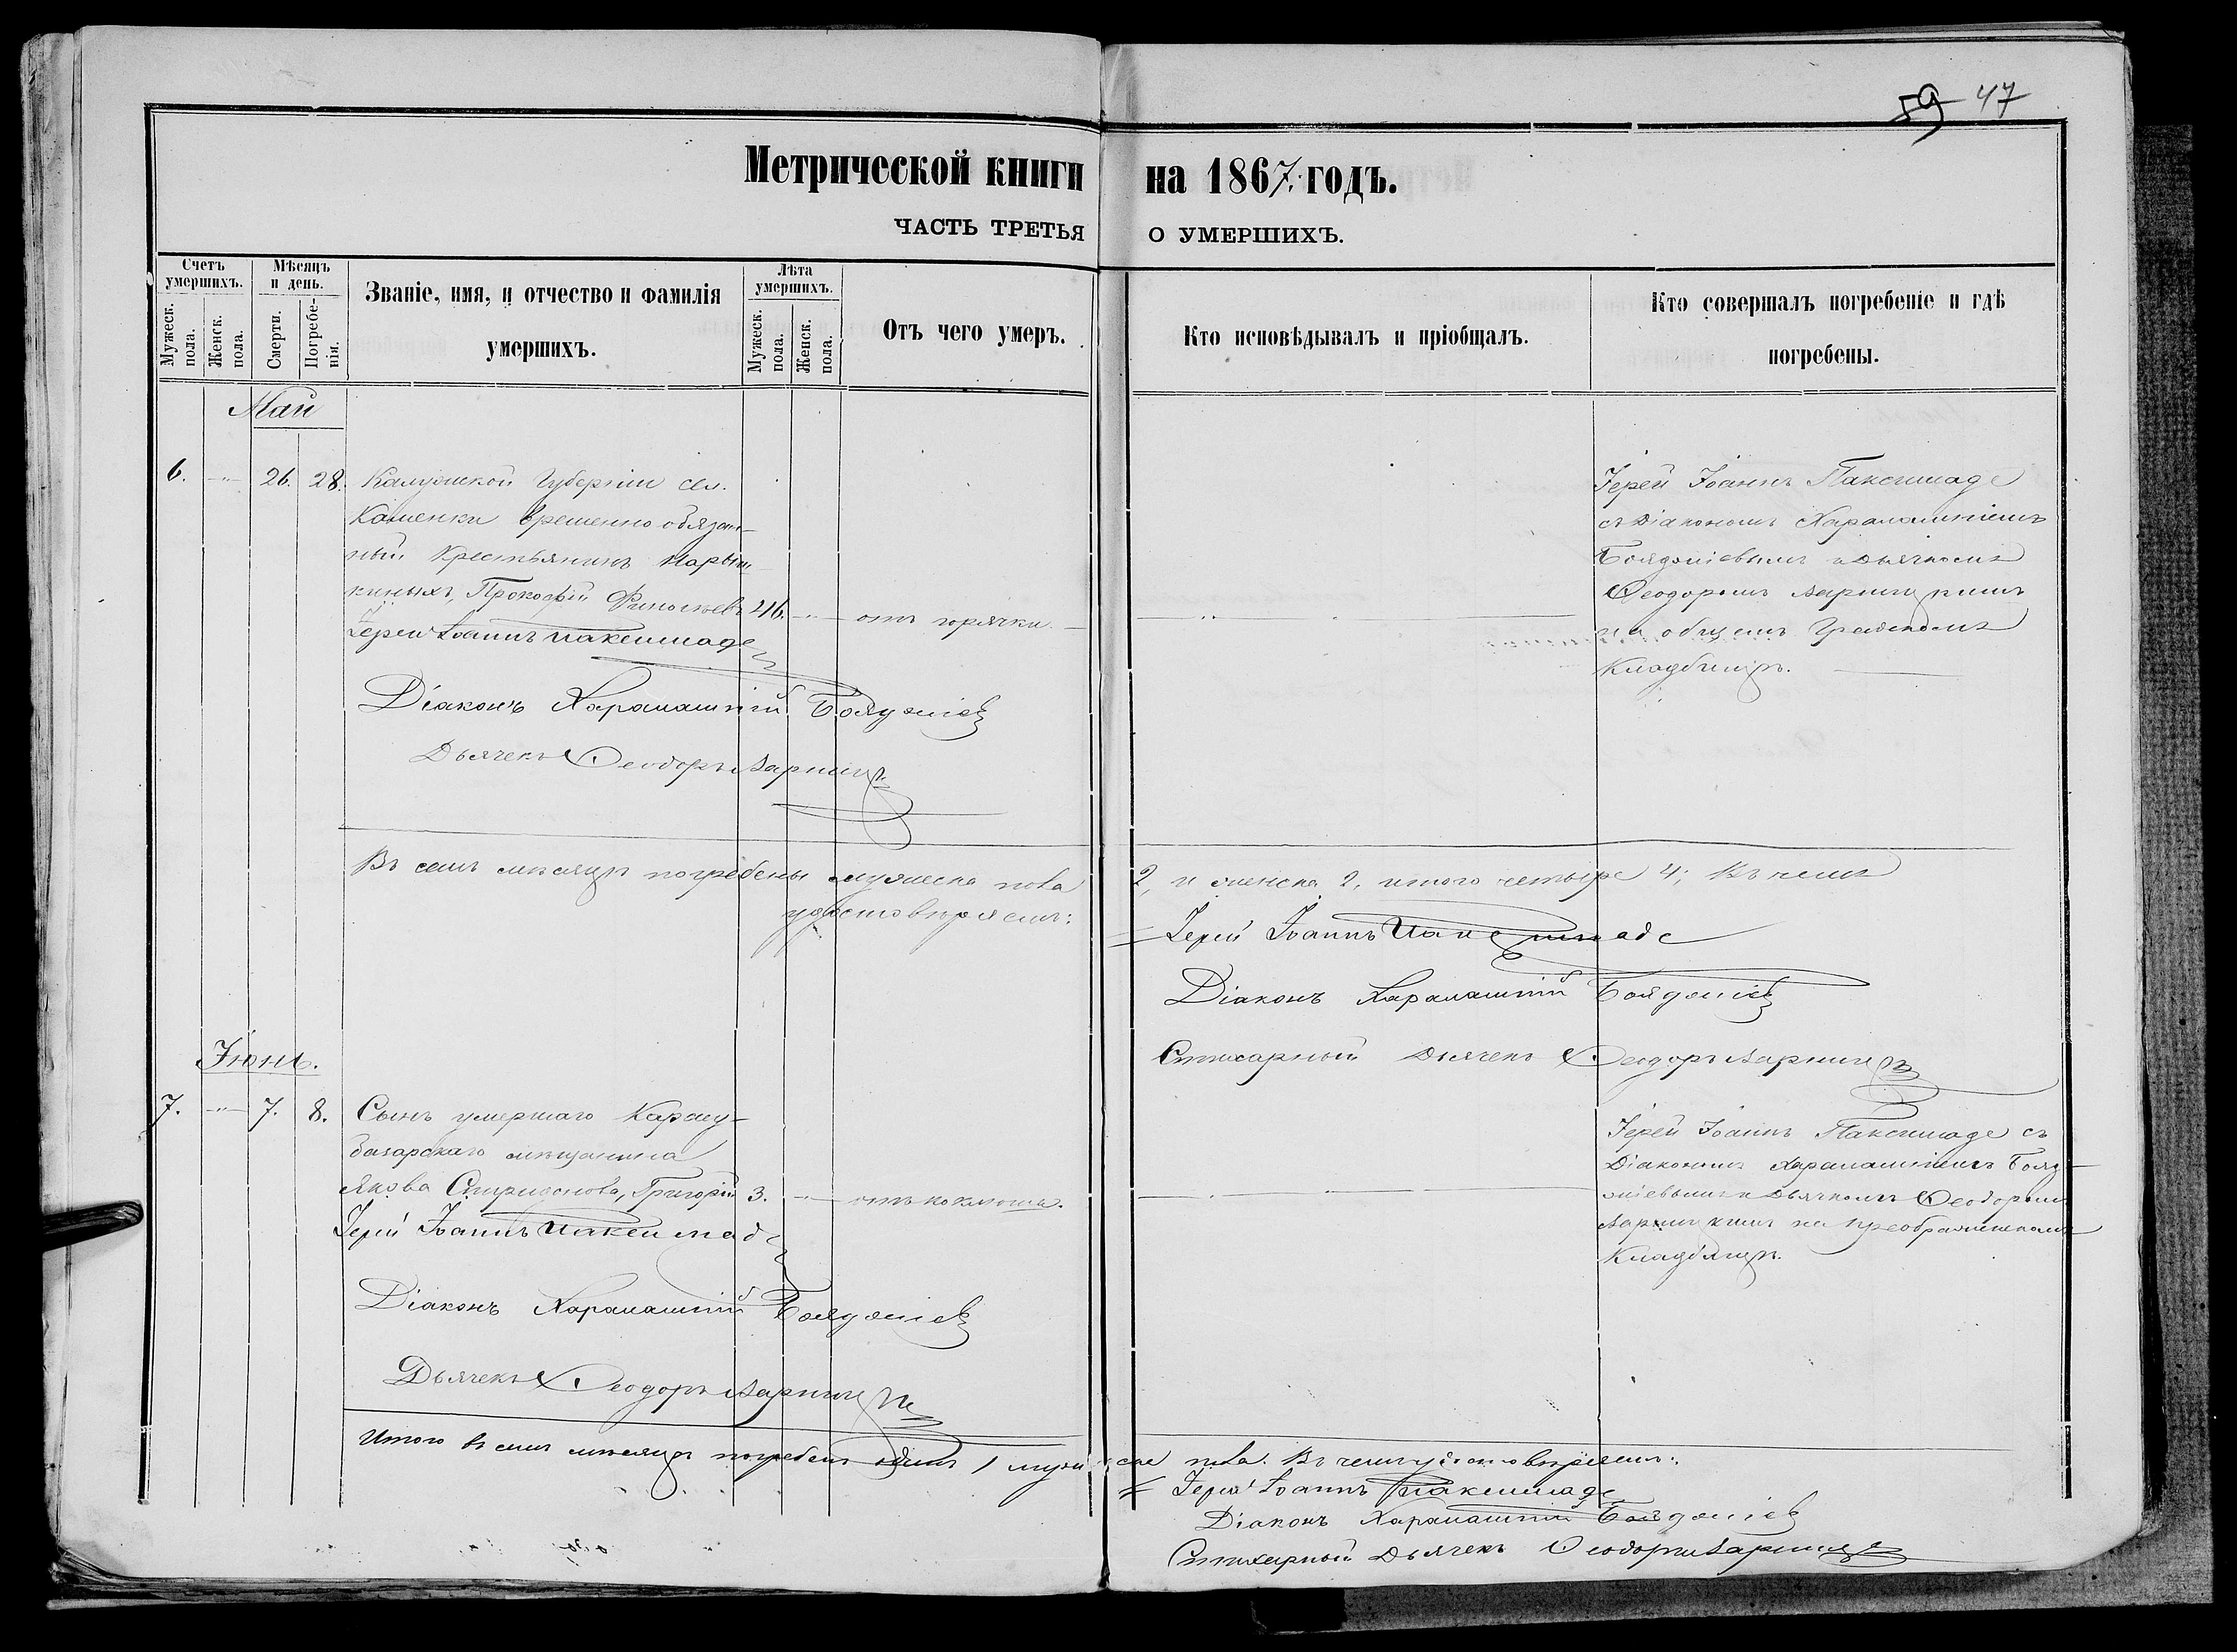 59 47
Метрической книги на 1867. годъ.
ЧАСТЬ ТРЕТЬЯ О УМЕРШИХЪ.
Счетъ умершихъ.
Мужеск. пола.
Женск. пола.
Мѣсяцъ и день.
Смерти.
Погребенія.
Званіе, имя, и отчество и фамилія
умершихъ.
Лѣта умершихъ.
Мужеск. пола.
Женск. пола.
Отъ чего умеръ.
Кто исповѣдывалъ и пріобщалъ.
Кто совершалъ погребеніе и гдѣ
погребены.
Май
6. 26. 28. Калужской Губерніи сел.
Каменки временно обязан-
ный Крестьянинъ Нарыш-
киныхъ, Прокофій 46. отъ горячки
Іерей Іоаннъ Паксимаде
Діаконъ Харалампій Бояджіев
Дьячекъ Ѳеодоръ
Іерей Іоаннъ Паксимаде
съ Діакономъ Харалампіемъ
Бояджіевымъ и Дьячкомъ
Ѳеодоромъ
на общемъ Градскомъ
Кладбищѣ.
Въ семъ мѣсяцѣ погребены мужеска пола 2, и женска 2, итого четыре 4; Въ чемъ
удостовѣряемъ:
Іерей Іоаннъ Паксимаде
Діаконъ Харалампій Бояджіев
Стихарный Дьячекъ Ѳеодоръ
Іюнь.
7. 7. 8. Сынъ умершаго Карасу-
базарскаго мѣщанина
Якова Спиридонова, Григорій 3. отъ коклюша.
Іерей Іоаннъ Паксимаде
Діаконъ Харалампій Бояджіев
Дьячекъ Ѳеодоръ
Іерей Іоаннъ Паксимаде съ
Діакономъ Харалампіемъ Бояд-
жіевымъ и Дьячкомъ Ѳеодоромъ
на Преображенскомъ
Кладбищѣ.
Итого въ семъ мѣсяцѣ погребенъ одинъ 1 мужеска пола. Въ чемъ удостовѣряемъ:
Іерей Іоаннъ Паксимаде
Діаконъ Харалампій Бояджіев
Стихарный Дьячекъ Ѳеодоръ